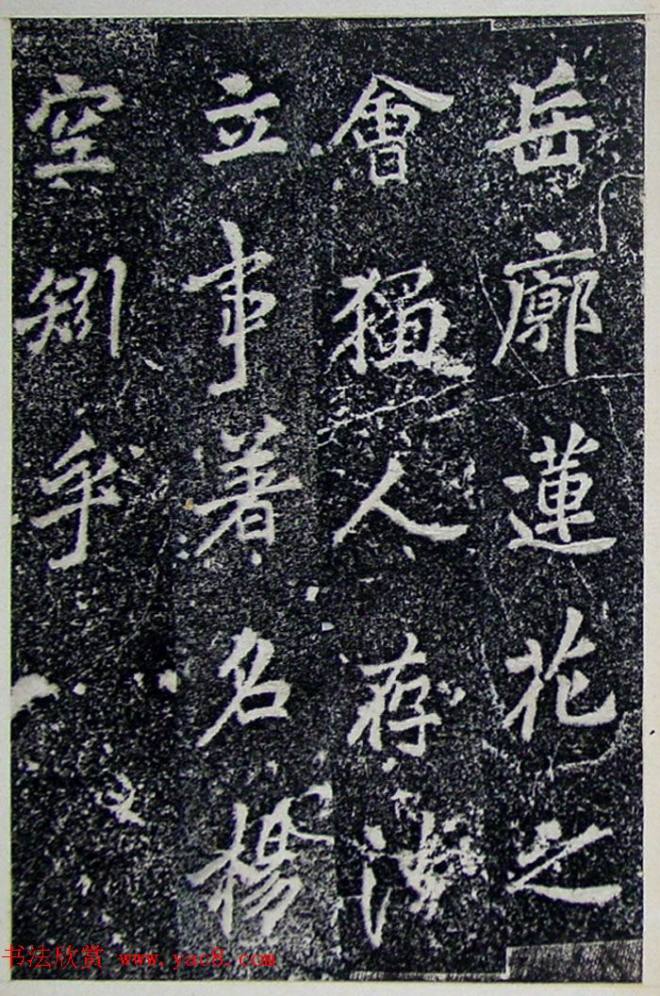 岳廓蓮花之
會獨人存
立事著名楊
空矧乎
书法欣赏 www.yac8.com